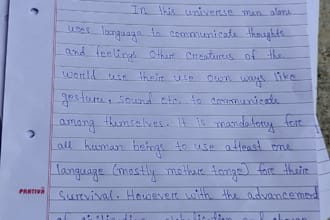 In this universe man alone
uses language to communicate thoughts
and feelings Other creatures of the
world use their use own ways like
gesture, sound etc. to communicate
among themselves. It is mandatory fore
all human beings to use atleast one
language (mostly mother tonge) fore their
PRATIVA
survival. However with the advancement